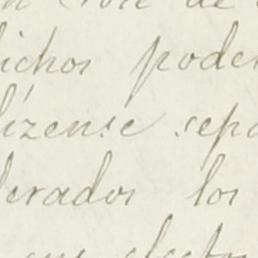 de
dichos poder
lízense sepa
derados los
que efectos